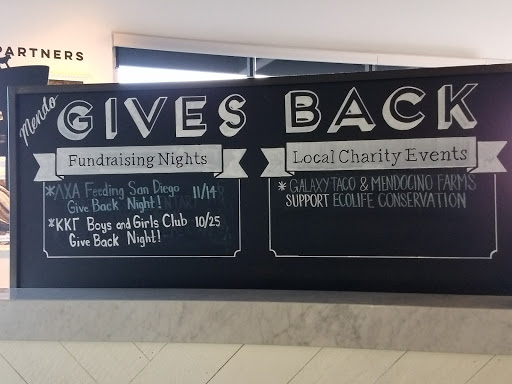 PARTNERS
Mendo GIVES BACK
Fundraising Nights
*ΛXA Feeding San Diego 11/14
Give Back Night!
*KKΓ Boys and Girls Club 10/25
Give Back Night!
Local Charity Events
* GALAXY TACO & MENDOCINO FARMS
SUPPORT ECOLIFE CONSERVATION